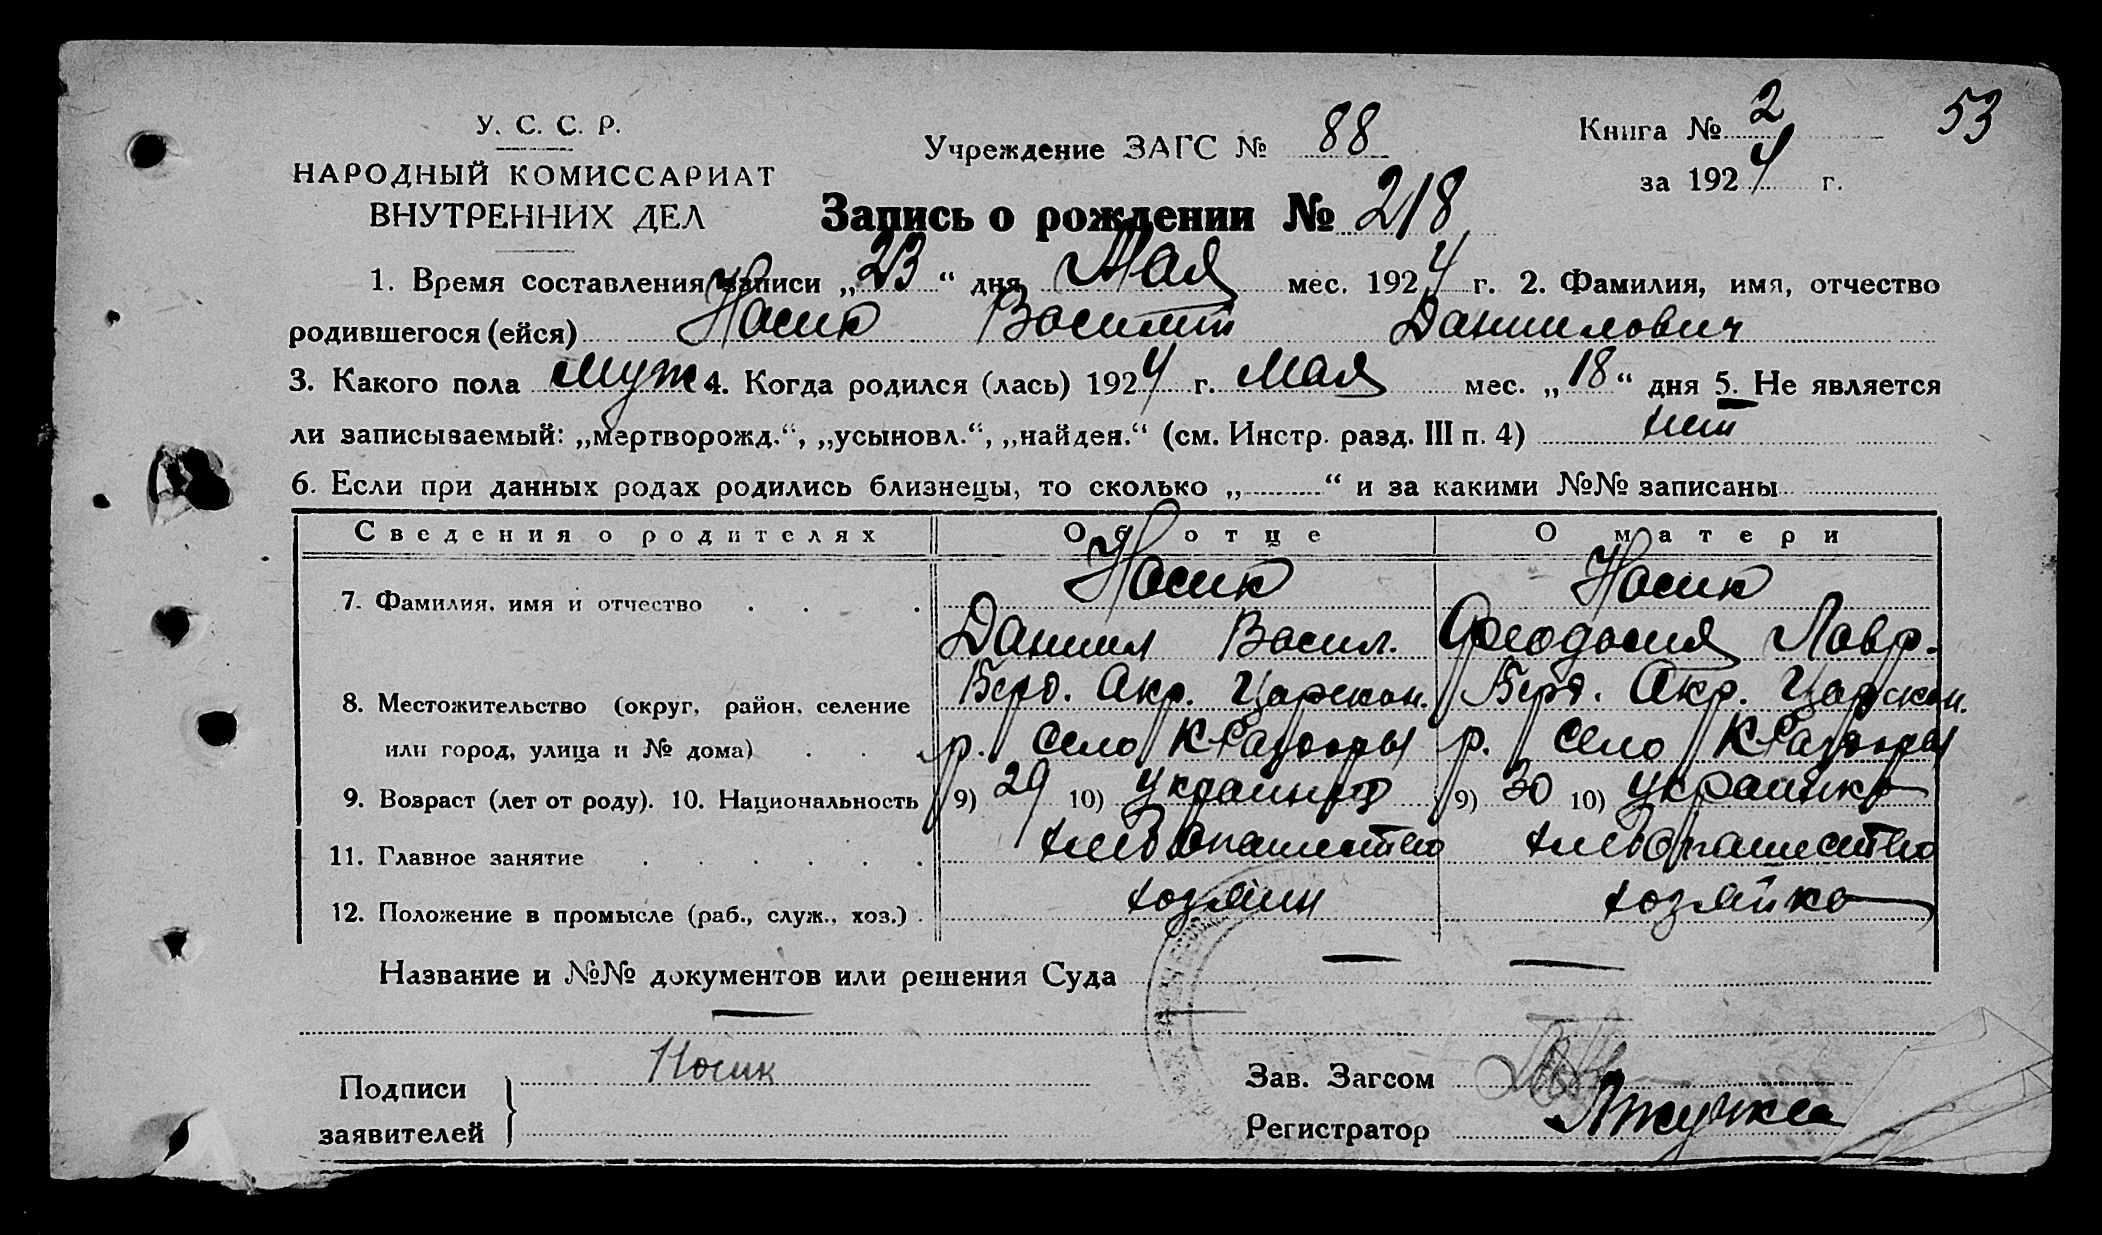 53
У. С. С. Р.
НАРОДНЫЙ КОМИССАРИАТ
ВНУТРЕННИХ ДЕЛ
Учреждение ЗАГС № 88
Книга № 2
за 1924 г.
Запись о рождении № 218
1. Время составления записи „23“ дня Мая мес. 1924 г. 2. Фамилия, имя, отчество
родившегося (ейся) Носик Василий Даниилович
3. Какого пола муж 4. Когда родился (лась) 1924 г. Мая мес. „18“ дня 5. Не является
ли записываемый: „мертворожд.“, „усыновл.“, „найден.“ (см. Инстр. разд. III п. 4) нет
6. Если при данных родах родились близнецы, то сколько „ “ и за какими №№ записаны
Сведения о родителях Об отце О матери
7. Фамилия, имя и отчество Носик Носик
Даниил Васил. Феодосия Лавр.
8. Местожительство (округ, район, селение Берд. Окр. Царекон. Берд. Окр. Царекон.
или город, улица и № дома) р. село р. село
9. Возраст (лет от роду). 10. Национальность 9) 29 10) украинец 9) 30 10) украинка
11. Главное занятие хлебопашество хлебопашество
12. Положение в промысле (раб., служ., хоз.) хозяин хозяйка
Название и №№ документов или решения Суда
Подписи Носик
заявителей
Зав. Загсом
Регистратор